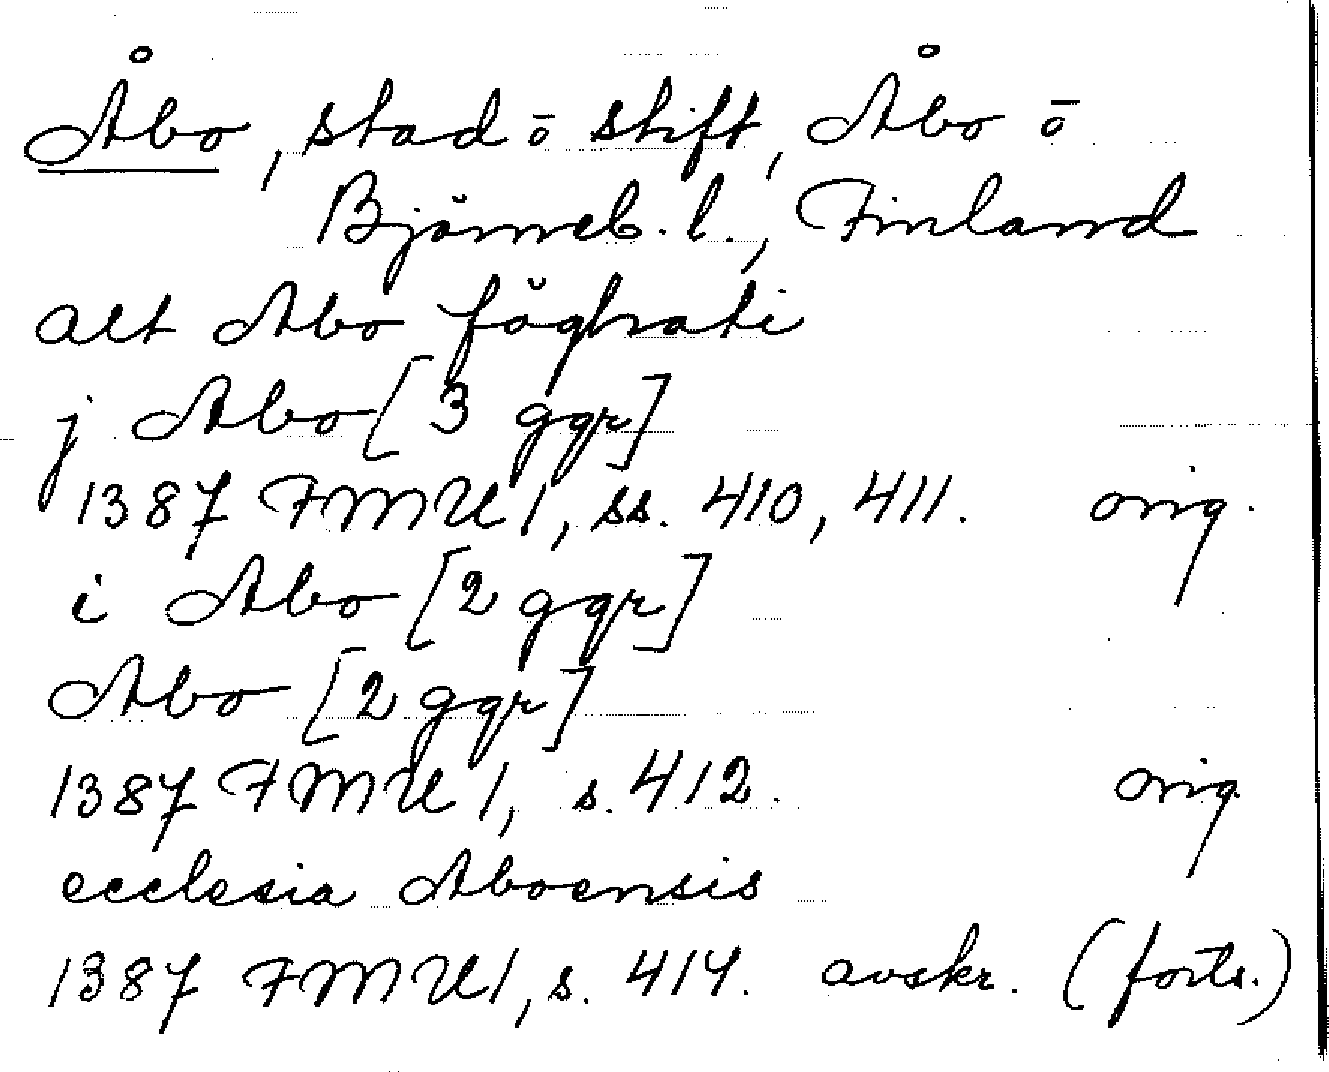 Åbo, stad ō stift, Åbo ō
Björneb. l., Finland
alt Aboföghrati
j Abo [3 ggr]
1387 FMU 1, ss. 410, 411. orig.
i Abo [2 ggr]
Abo [2 ggr]
1387 FMU 1, s. 412. orig.
ecclesia Aboensis
1387 FMU 1, s. 414. avskr. (forts.)